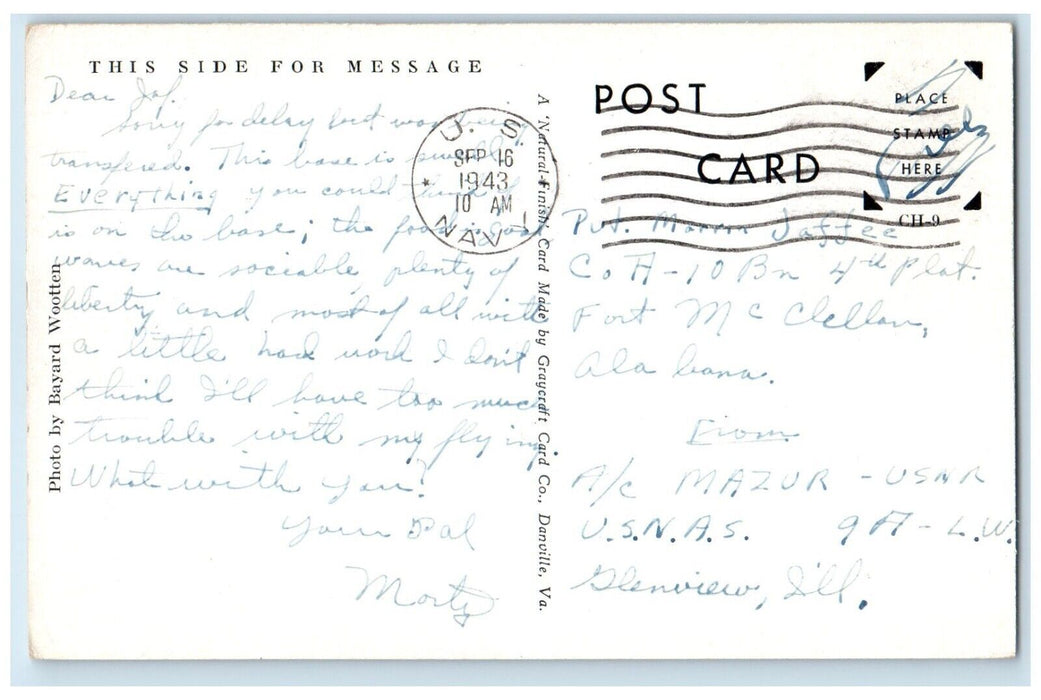 THIS SIDE FOR MESSAGE
Dear Jaf.
Sorry for delay but was being
transfered. This base is swell!
Everything you could think of
is on the base; the food is good
waves are sociable plenty of
liberty and most of all with
a little hard work I don't
think I'll have too much
trouble with my flying.
What with you?
Your Pal
Morty
Photo by Bayard Wootten
A 'Natural-Finish' Card Made by Graycraft Card Co., Danville, Va.
U. S.
SEP 16
1943
10 AM
NAVY
POST
CARD
PLACE
STAMP
HERE
CH-9
Free
Pvt. Marvin Jaffee
Co A - 10 Bn 4th Plat.
Fort Mc Clellan,
Alabama.
From
A/c MAZUR - USNR
U.S.N.A.S. 9A - L.W.
Glenview, Ill.